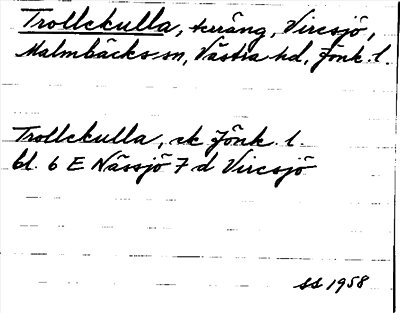 Trollekulla, terräng, Viresjö,
Malmbäcks sn, Västra hd, Jönk. l.
Trollekulla, ek Jönk. l.
bl. 6 E Nässjö 7 d Viresjö
SS 1958